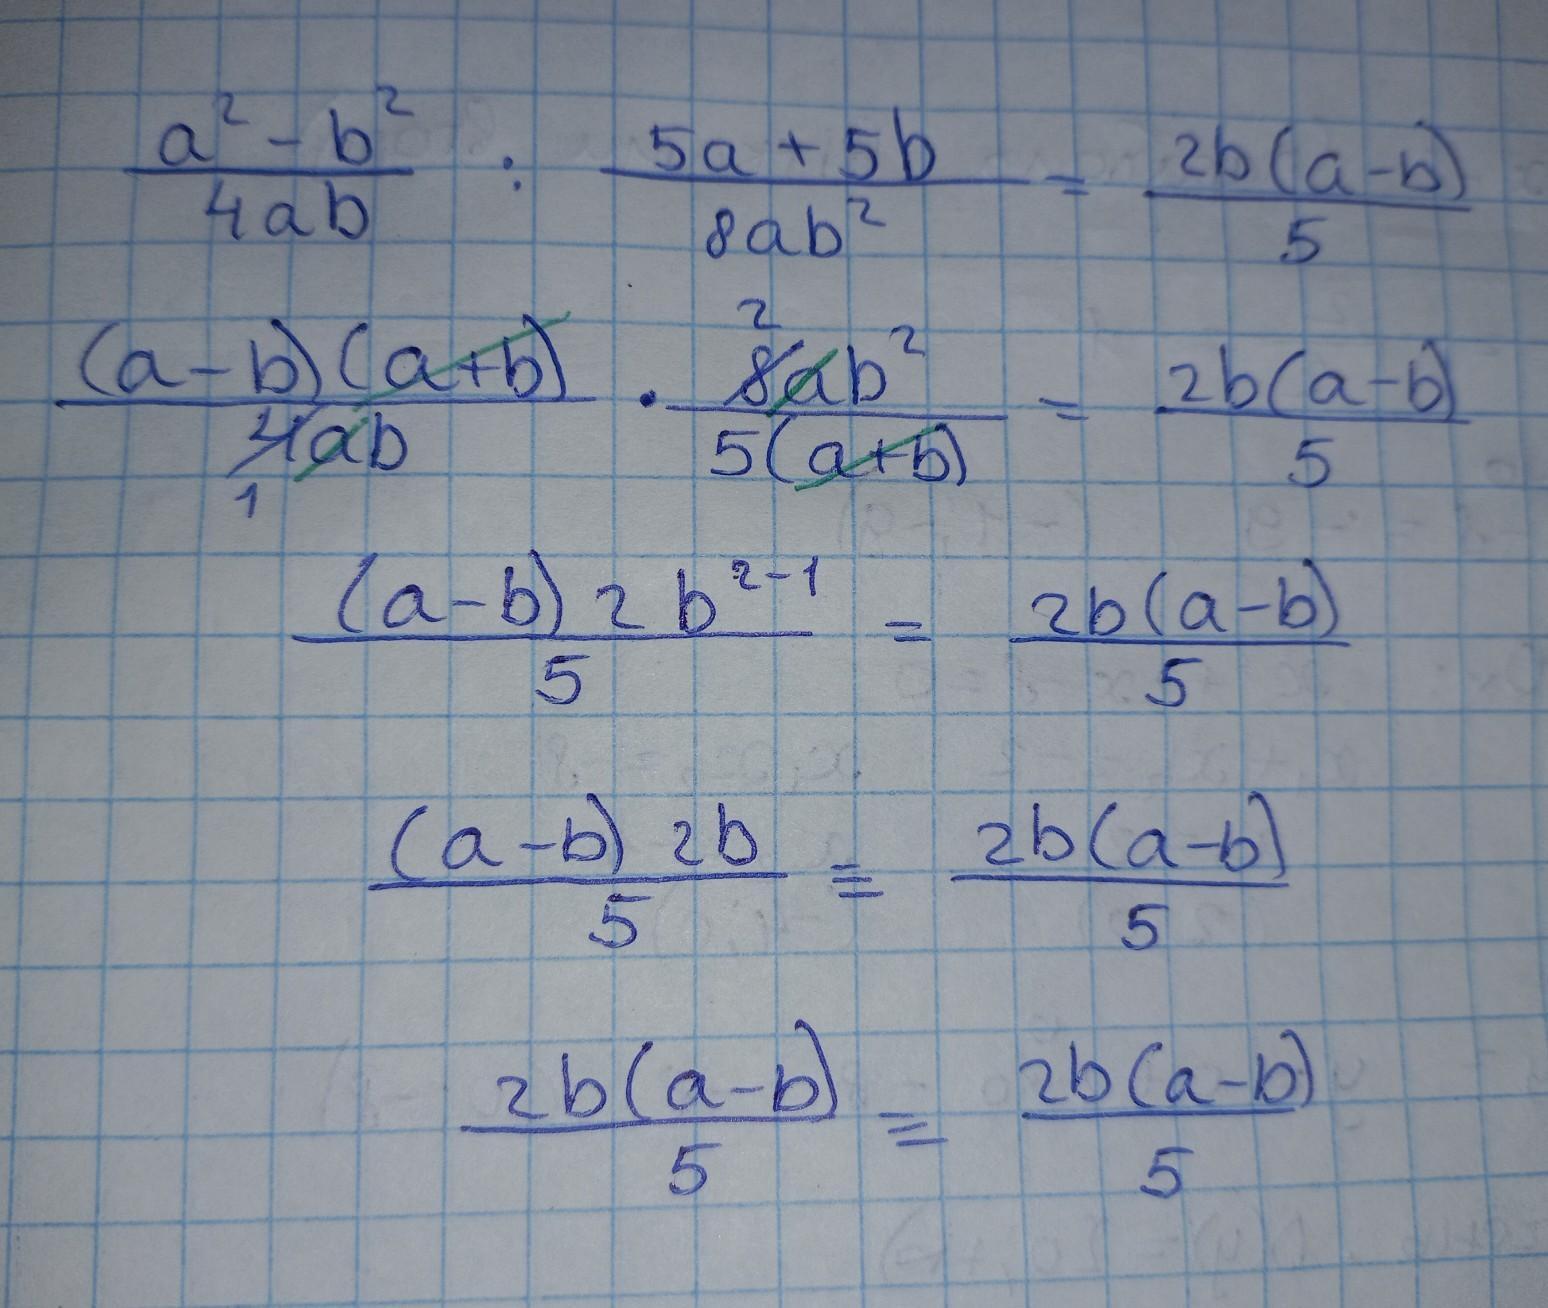 (a² - b²)/(4ab) : (5a + 5b)/(8ab²) = (2b(a-b))/5
((a-b)(a+b))/(4ab) · (8ab²)/(5(a+b)) = (2b(a-b))/5
2
1
((a-b) 2b²⁻¹)/5 = (2b(a-b))/5
((a-b) 2b)/5 ≡ (2b(a-b))/5
(2b(a-b))/5 ≡ (2b(a-b))/5